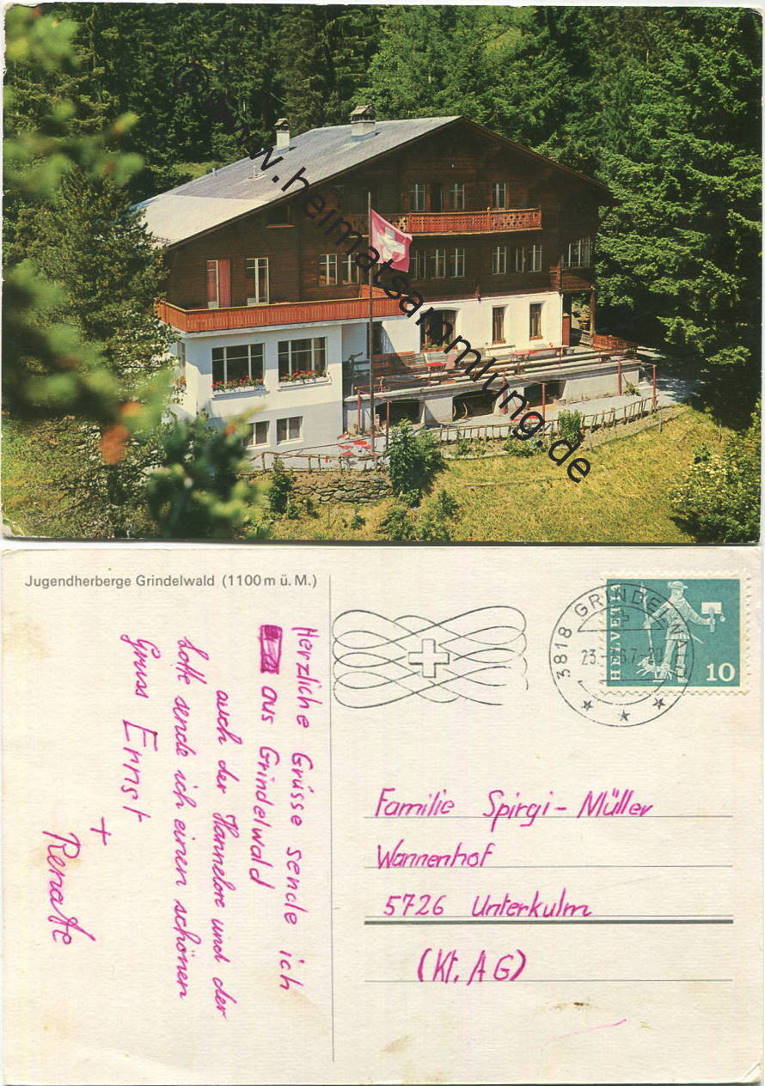 © www.heimatsammlung.de
Jugendherberge Grindelwald (1100 m ü. M.)
Herzliche Grüsse sende ich
aus Grindelwald
auch der Hannelore und der
Lotti sende ich einen schönen
Gruss Ernst
+
Renate
3818 GRINDELWALD
HELVETIA
10
Familie Spirgi-Müller
Wannenhof
5726 Unterkulm
(Kt. AG)